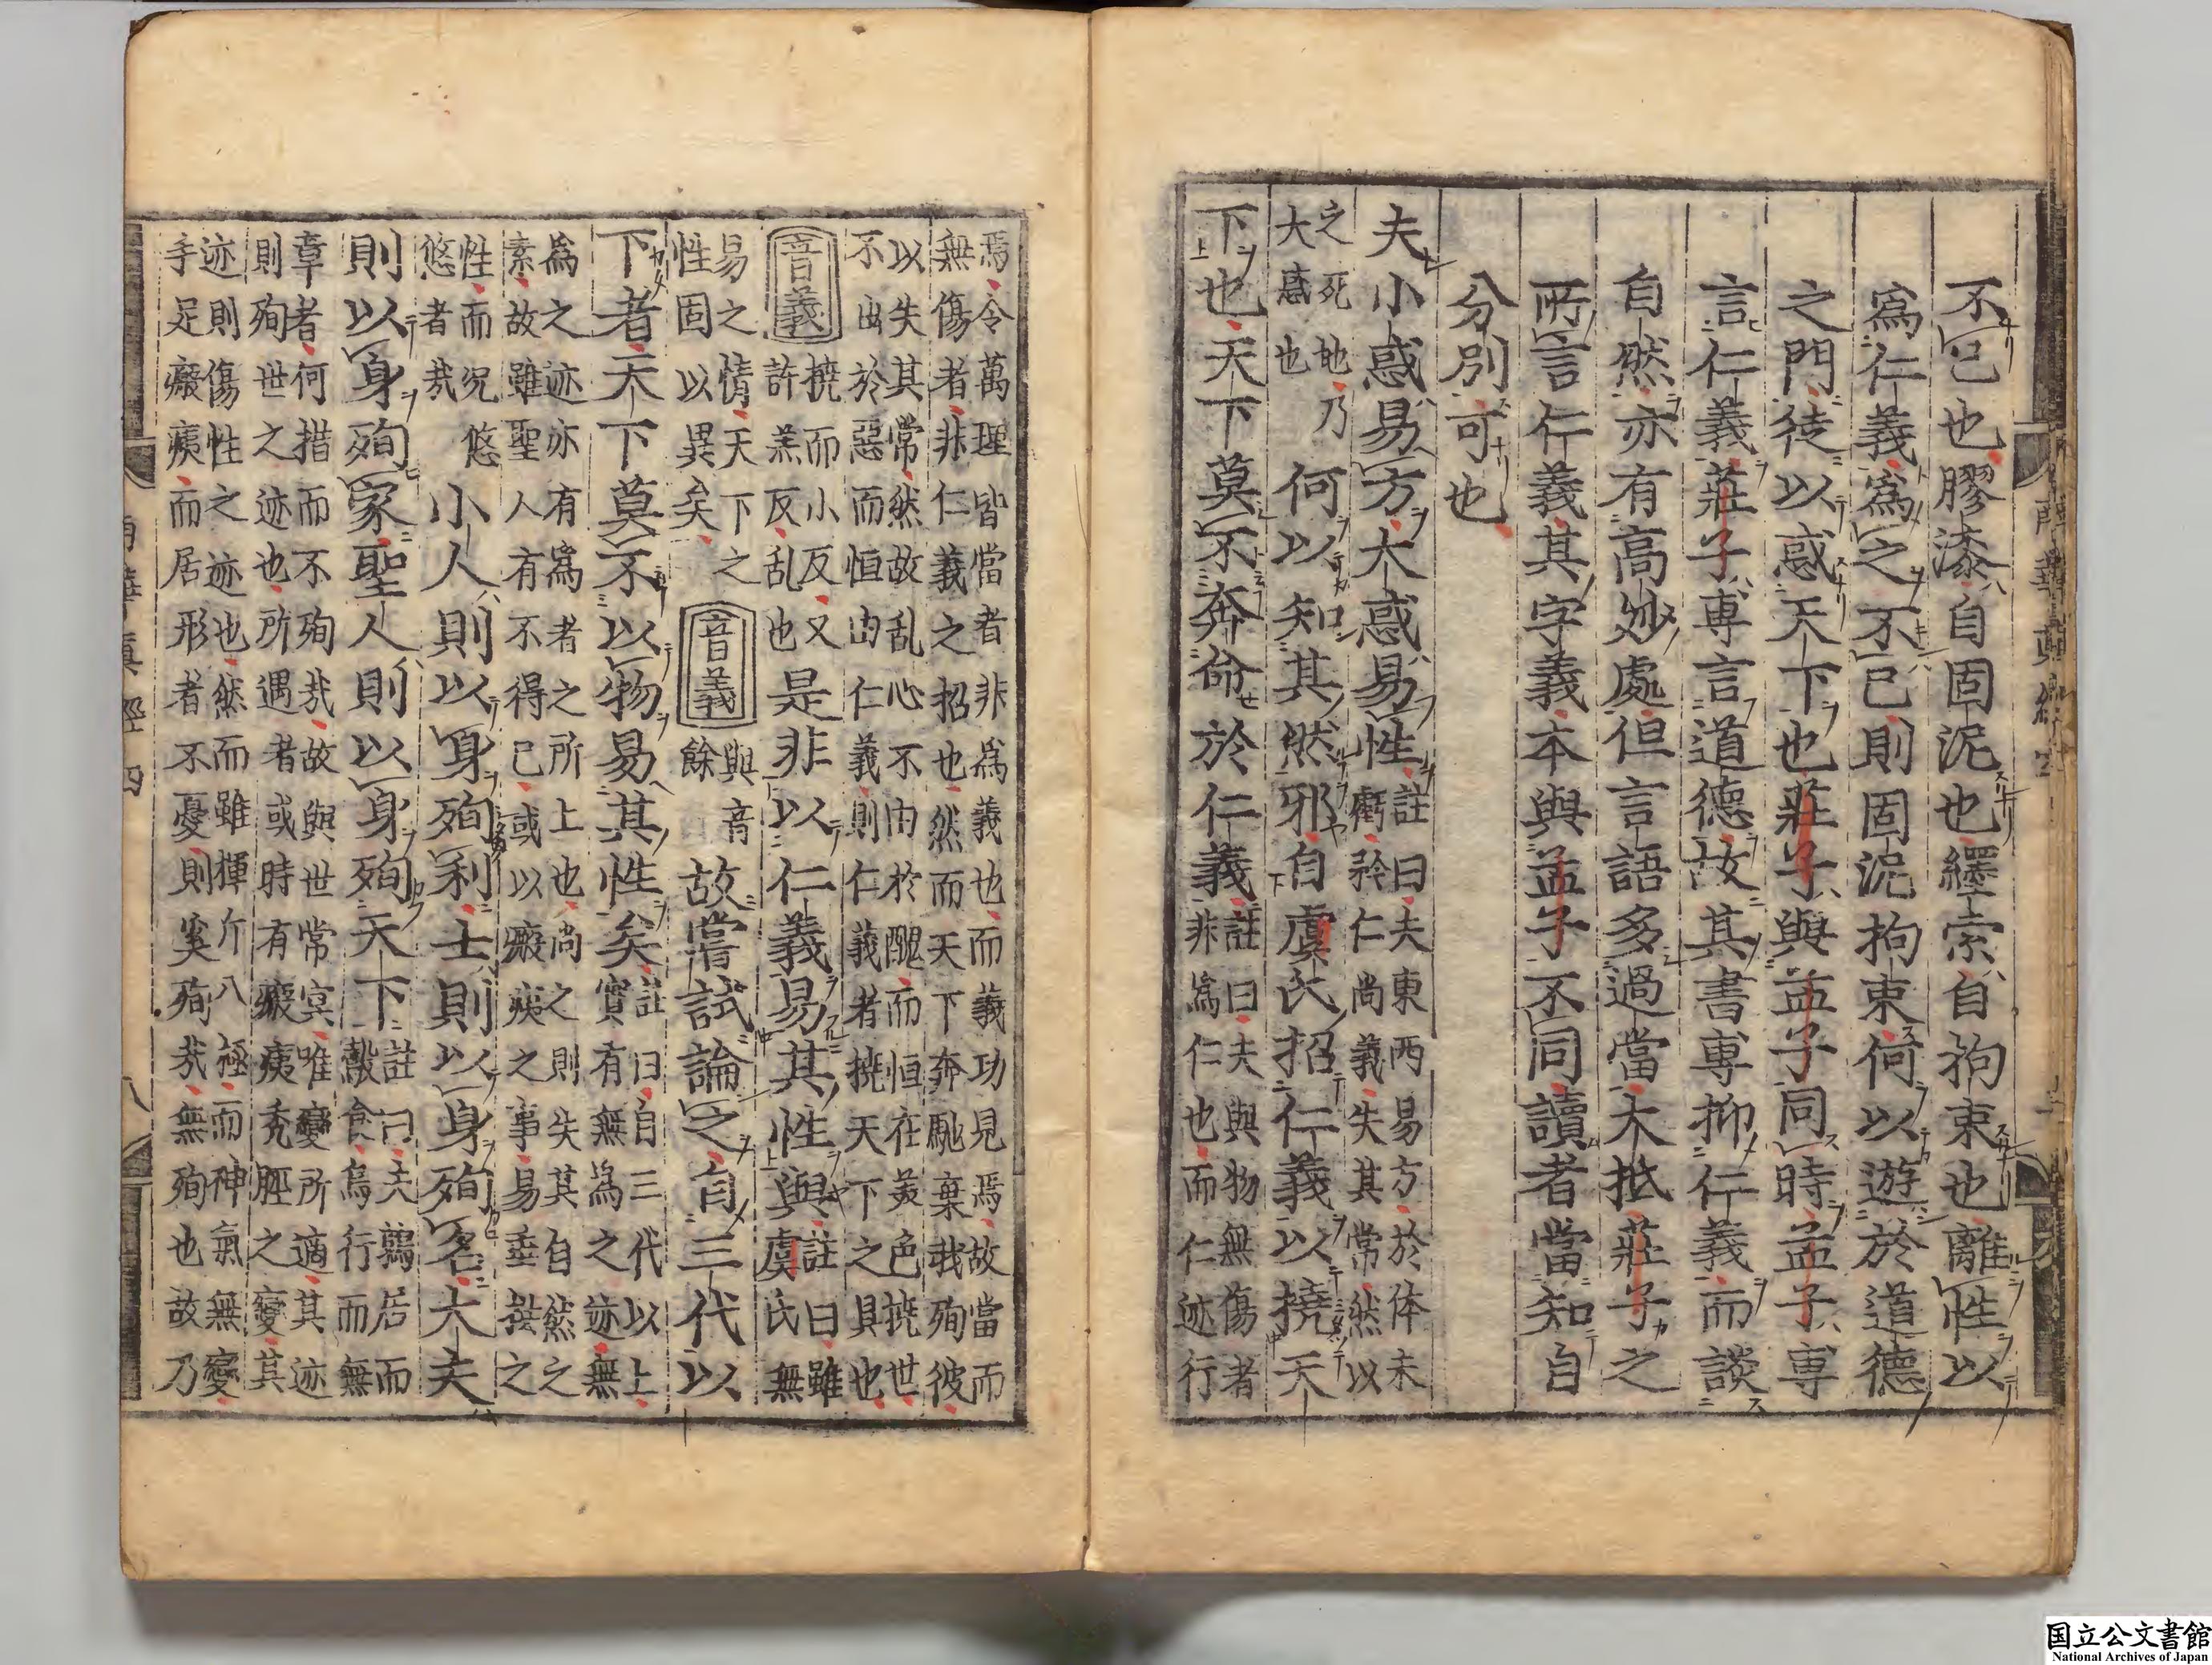 不已也膠漆自固泥也纆索自拘束也離性以
為仁義為之不已則固泥拘束何以遊於道德
之門徒以惑天下也莊子與孟子同時孟子專
言仁義莊子專言道德故其書專抑仁義而談
自然亦有高妙處但言語多過當大抵莊子之
所言仁義其字義本與孟子不同讀者當知自
分別可也
夫小惑易方大惑易性註曰夫東西易方於体未虧矜仁尚義失其常然以
之死地乃大惑也何以知其然邪自虞氏招仁義以撓天
下也天下莫不奔命於仁義註曰夫與物無傷者非為仁也而仁迹行
焉令萬理皆當者非為義也而義功見焉故當而
無傷者非仁義之招也然而天下奔馳棄我殉彼
以失其常然故乱心不由於醜而恒在美色撓世
不由於惡而恒由仁義則仁義者撓天下之具也
音義撓而小反又許羔反乱也是非以仁義易其性與註曰雖虞氏無
易之情天下之性固以異矣音義與音餘故嘗試論之自三代以
下者天下莫不以物易其性矣註曰自三代以上實有無為之迹無
為之迹亦有為者之所上也尚之則失其自然之
素故雖聖人有不得已或以瘢痍之事易垂拱之
性而況悠悠者哉小人則以身殉利士則以身殉名大夫
則以身殉家聖人則以身殉天下註曰夫鶉居而鷇食鳥行而無
章者何措而不殉哉故與世常冥唯變所適其迹
則殉世之迹也所遇者或時有瘢痍禿脛之變其
迹則傷性之迹也然而雖揮斥八極而神氣無變
手足瘢痍而居形者不憂則奚殉哉無殉也故乃
国立公文書館
National Archives of Japan